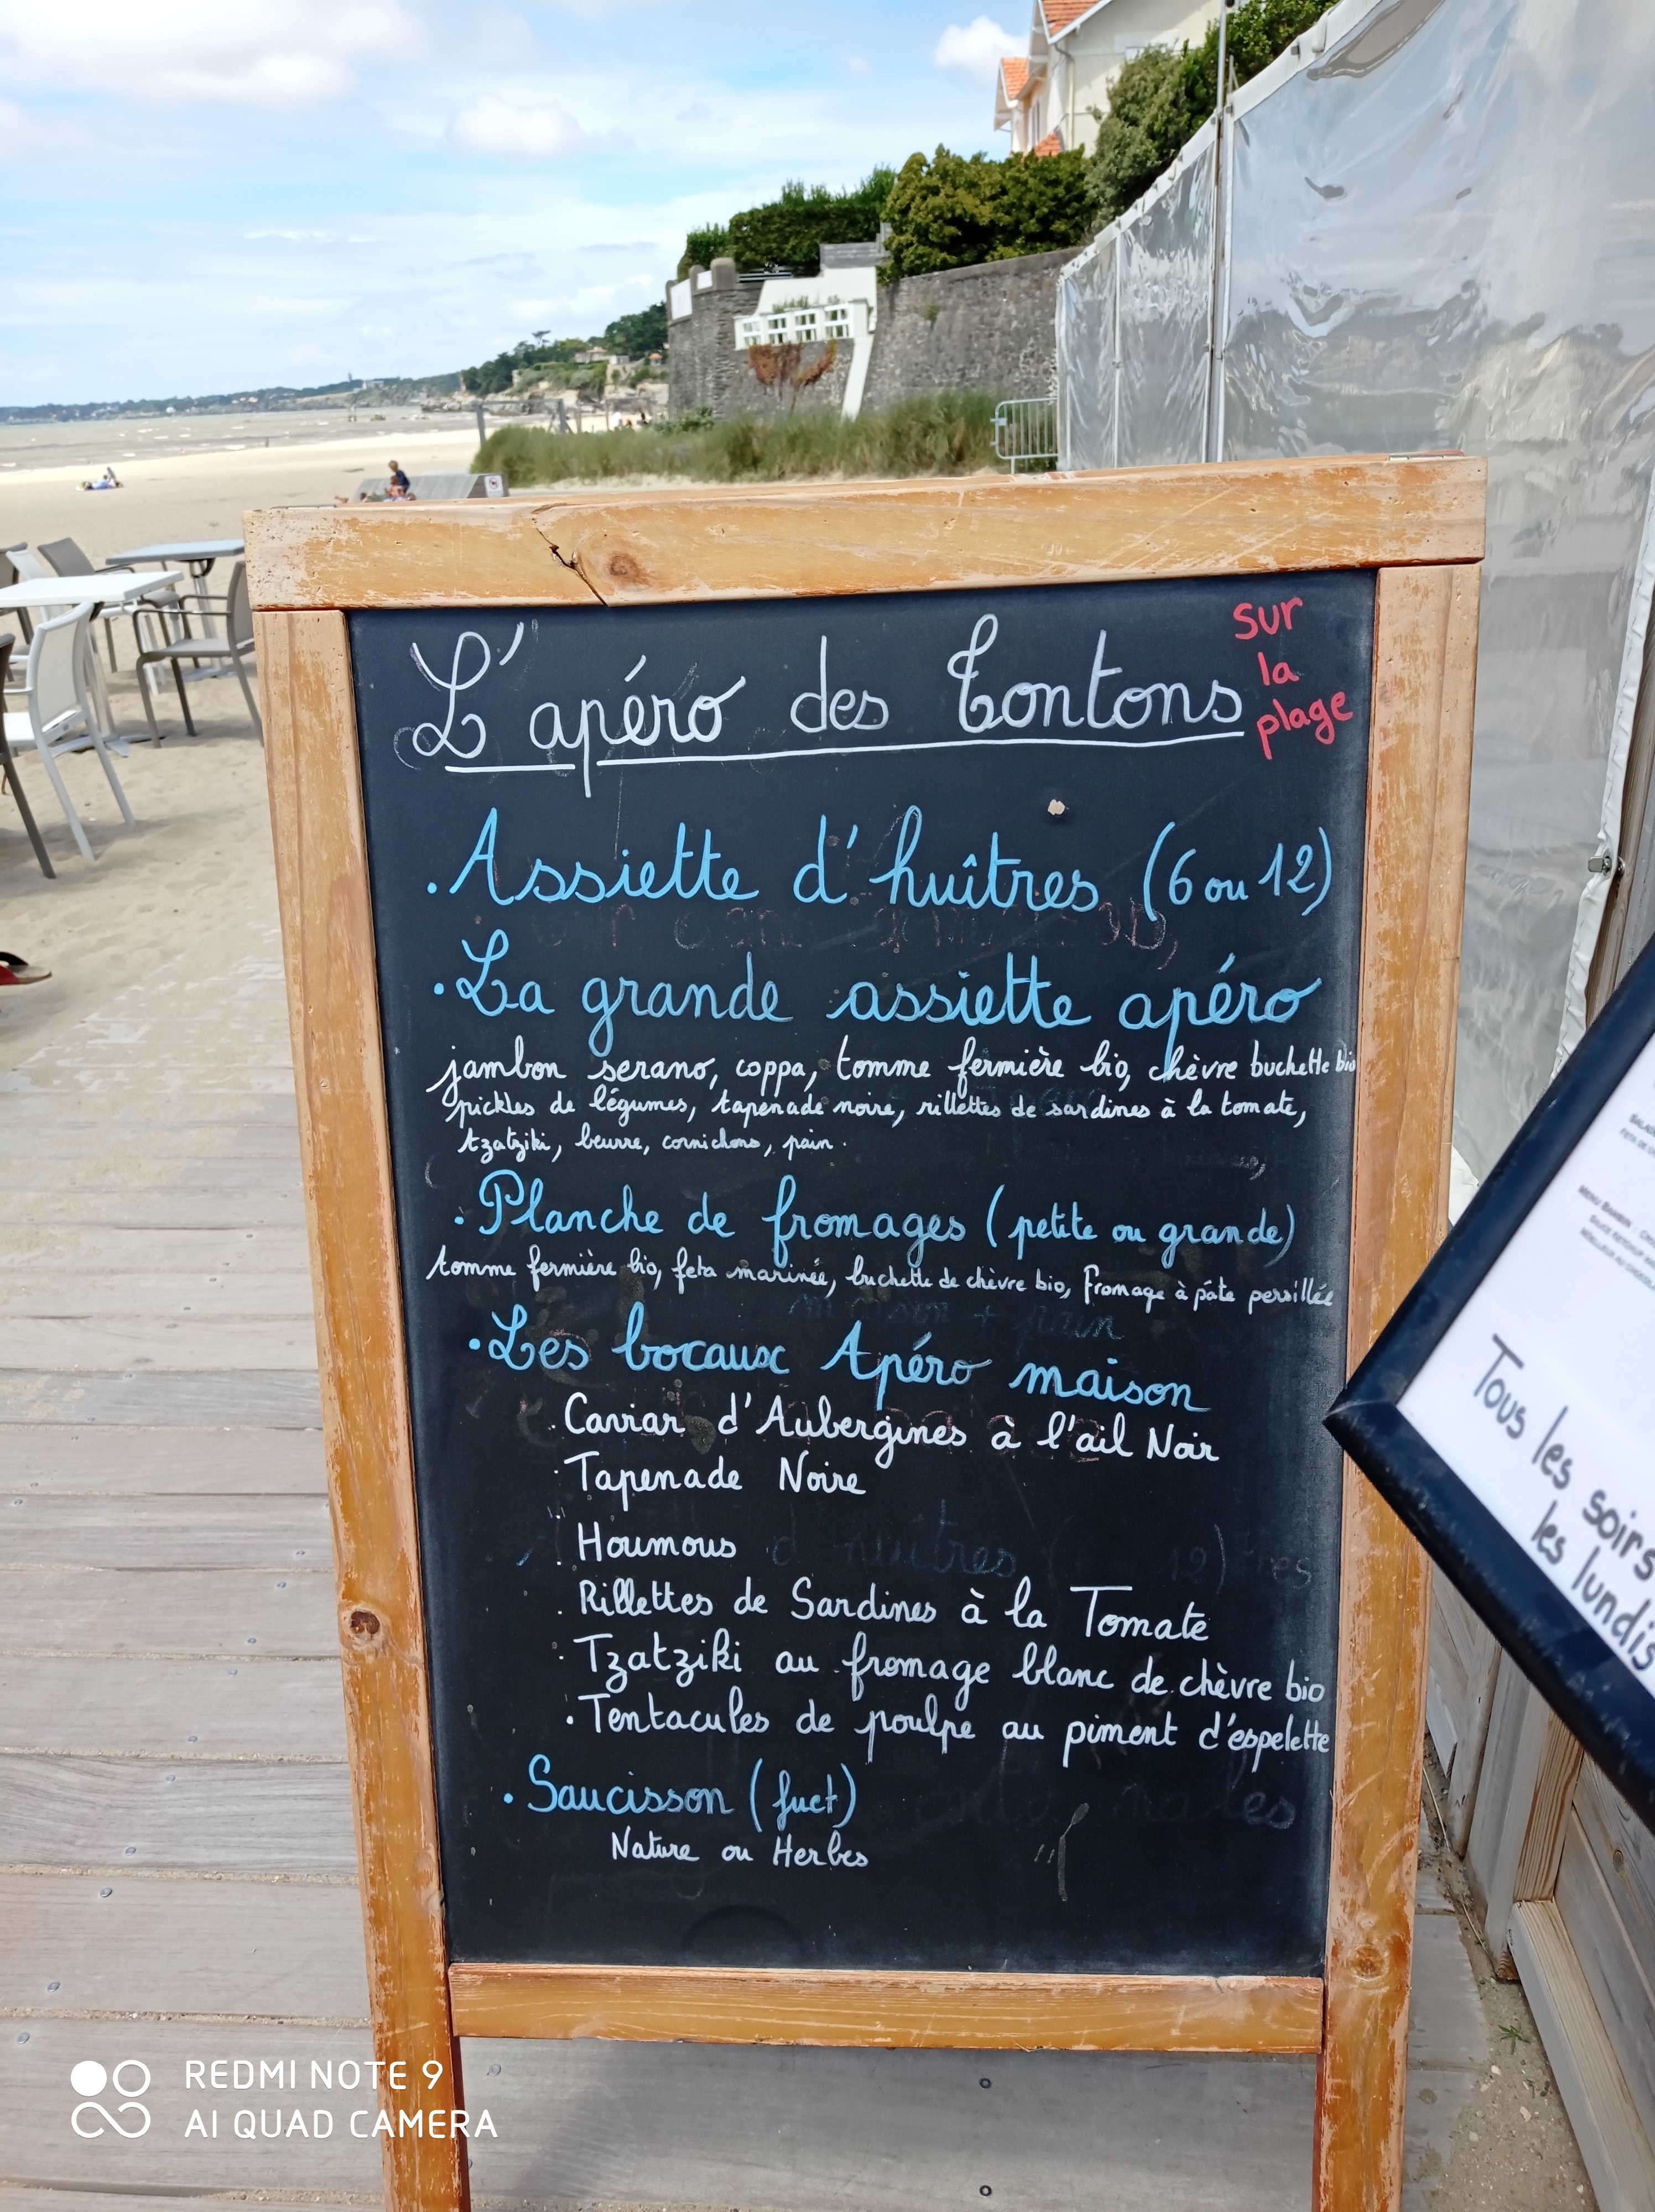 L'apéro des Tontons
sur
la
plage
. Assiette d'huîtres (6 ou 12)
. La grande assiette apéro
jambon serano, coppa, tomme fermière bio, chèvre buchette bio
pickles de légumes, tapenade noire, rillettes de sardines à la tomate,
tzatziki, beurre, cornichons, pain.
. Planche de fromages (petite ou grande)
tomme fermière bio, feta marinée, buchette de chèvre bio, fromage à pâte persillée
. Les bocaux Apéro maison
. Caviar d'Aubergines à l'ail Noir
. Tapenade Noire
. Houmous
. Rillettes de Sardines à la Tomate
. Tzatziki au fromage blanc de chèvre bio
. Tentacules de poulpe au piment d'espelette
. Saucisson (fuet)
Nature ou Herbes
Tous les soirs
les lundis
REDMI NOTE 9
AI QUAD CAMERA